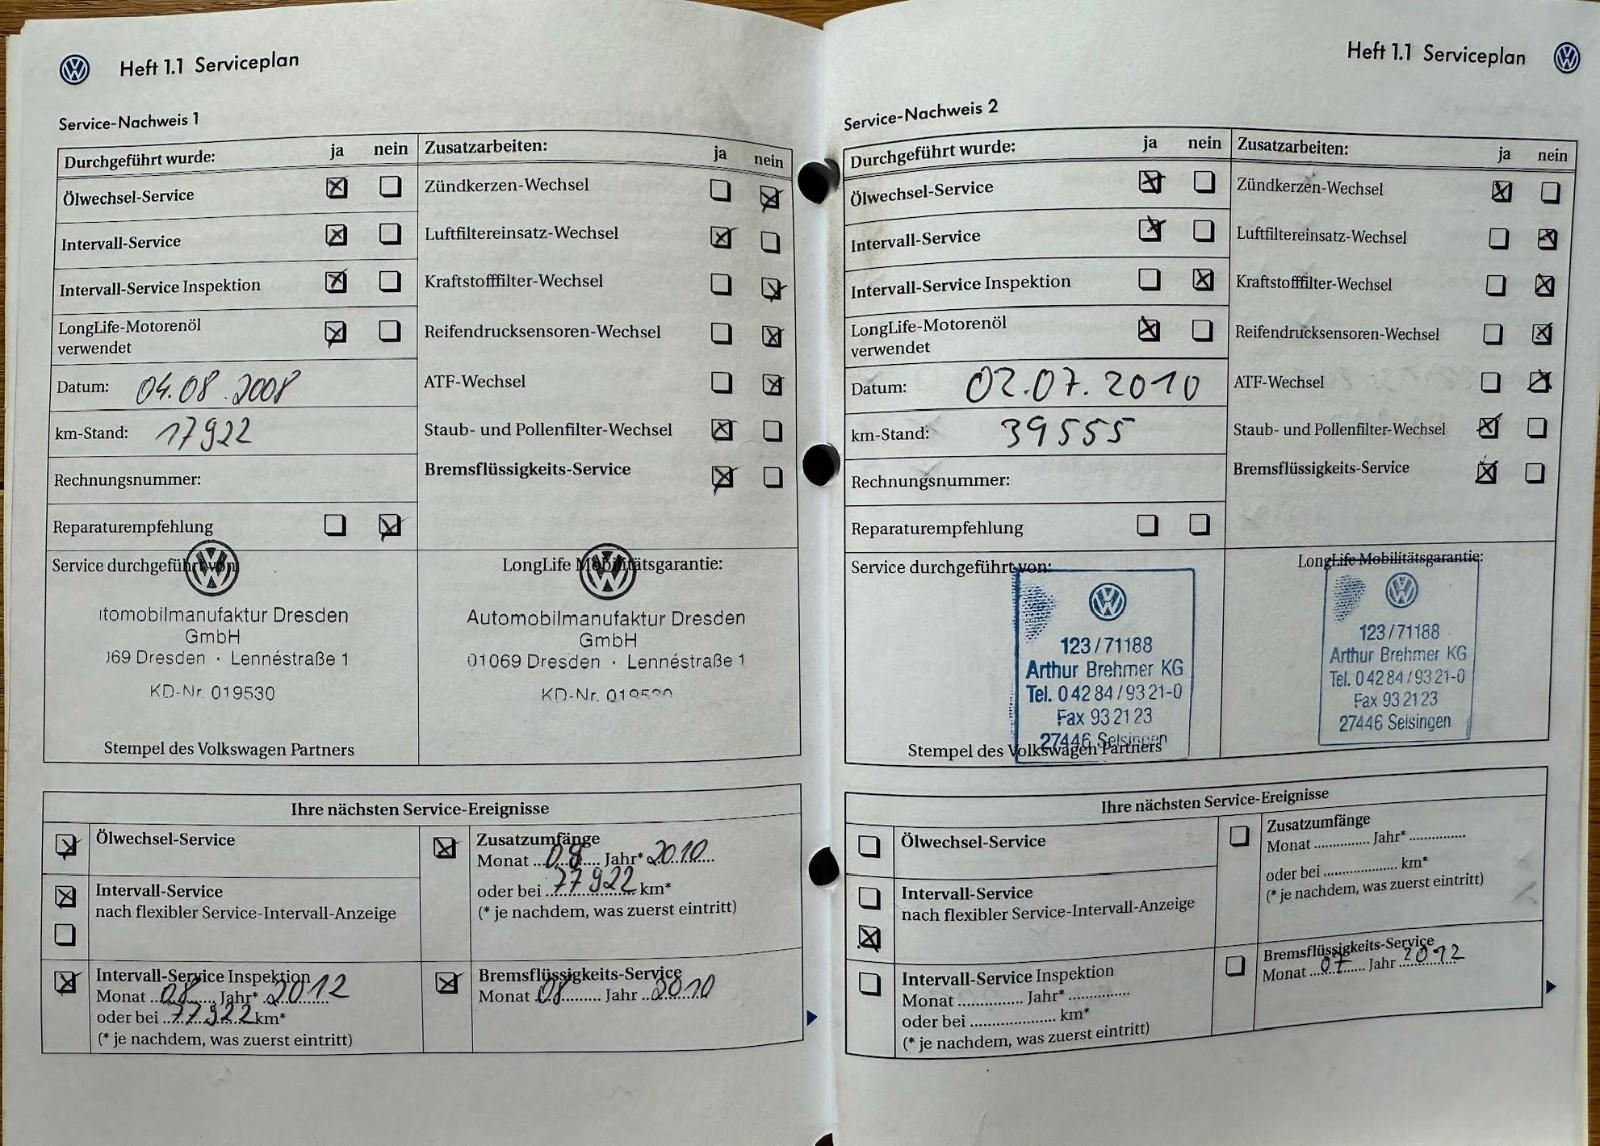 Heft 1.1 Serviceplan
Service-Nachweis 1
Durchgeführt wurde: ja nein
Ölwechsel-Service
Intervall-Service
Intervall-Service Inspektion
LongLife-Motorenöl
verwendet
Datum: 04.08.2008
km-Stand: 17922
Rechnungsnummer:
Reparaturempfehlung
Zusatzarbeiten: ja nein
Zündkerzen-Wechsel
Luftfiltereinsatz-Wechsel
Kraftstofffilter-Wechsel
Reifendrucksensoren-Wechsel
ATF-Wechsel
Staub- und Pollenfilter-Wechsel
Bremsflüssigkeits-Service
Service durchgeführt von:
tomobilmanufaktur Dresden
GmbH
069 Dresden · Lennéstraße 1
KD-Nr. 019530
Stempel des Volkswagen Partners
LongLife Mobilitätsgarantie:
Automobilmanufaktur Dresden
GmbH
01069 Dresden · Lennéstraße 1
KD-Nr. 019530
Ihre nächsten Service-Ereignisse
Ölwechsel-Service
Intervall-Service
nach flexibler Service-Intervall-Anzeige
Intervall-Service Inspektion
Monat 08 Jahr* 2012
oder bei 77922 km*
(* je nachdem, was zuerst eintritt)
Zusatzumfänge
Monat 08 Jahr* 2010
oder bei 77922 km*
(* je nachdem, was zuerst eintritt)
Bremsflüssigkeits-Service
Monat 08 Jahr 2010
Heft 1.1 Serviceplan
Service-Nachweis 2
Durchgeführt wurde: ja nein
Ölwechsel-Service
Intervall-Service
Intervall-Service Inspektion
LongLife-Motorenöl
verwendet
Datum: 02.07.2010
km-Stand: 39555
Rechnungsnummer:
Reparaturempfehlung
Zusatzarbeiten: ja nein
Zündkerzen-Wechsel
Luftfiltereinsatz-Wechsel
Kraftstofffilter-Wechsel
Reifendrucksensoren-Wechsel
ATF-Wechsel
Staub- und Pollenfilter-Wechsel
Bremsflüssigkeits-Service
Service durchgeführt von:
123/71188
Arthur Brehmer KG
Tel. 0 42 84 / 93 21-0
Fax 93 21 23
27446 Selsingen
Stempel des Volkswagen Partners
LongLife Mobilitätsgarantie:
123/71188
Arthur Brehmer KG
Tel. 0 42 84 / 93 21-0
Fax 93 21 23
27446 Selsingen
Ihre nächsten Service-Ereignisse
Ölwechsel-Service
Intervall-Service
nach flexibler Service-Intervall-Anzeige
Intervall-Service Inspektion
Monat ............... Jahr* ...............
oder bei .................... km*
(* je nachdem, was zuerst eintritt)
Zusatzumfänge
Monat .................. Jahr* ..............
oder bei .................. km*
(* je nachdem, was zuerst eintritt)
Bremsflüssigkeits-Service
Monat 07 Jahr 2012